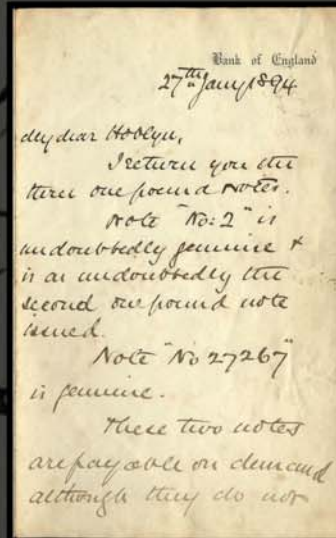 Bank of England
27th Jany 1894
My dear Hoblyn,
I return you the
three one pound notes.
Note "No: 2" is
undoubtedly genuine &
is as undoubtedly the
second one pound note
issued.
Note "No 27267"
is genuine.
These two notes
are payable on demand
although they do not